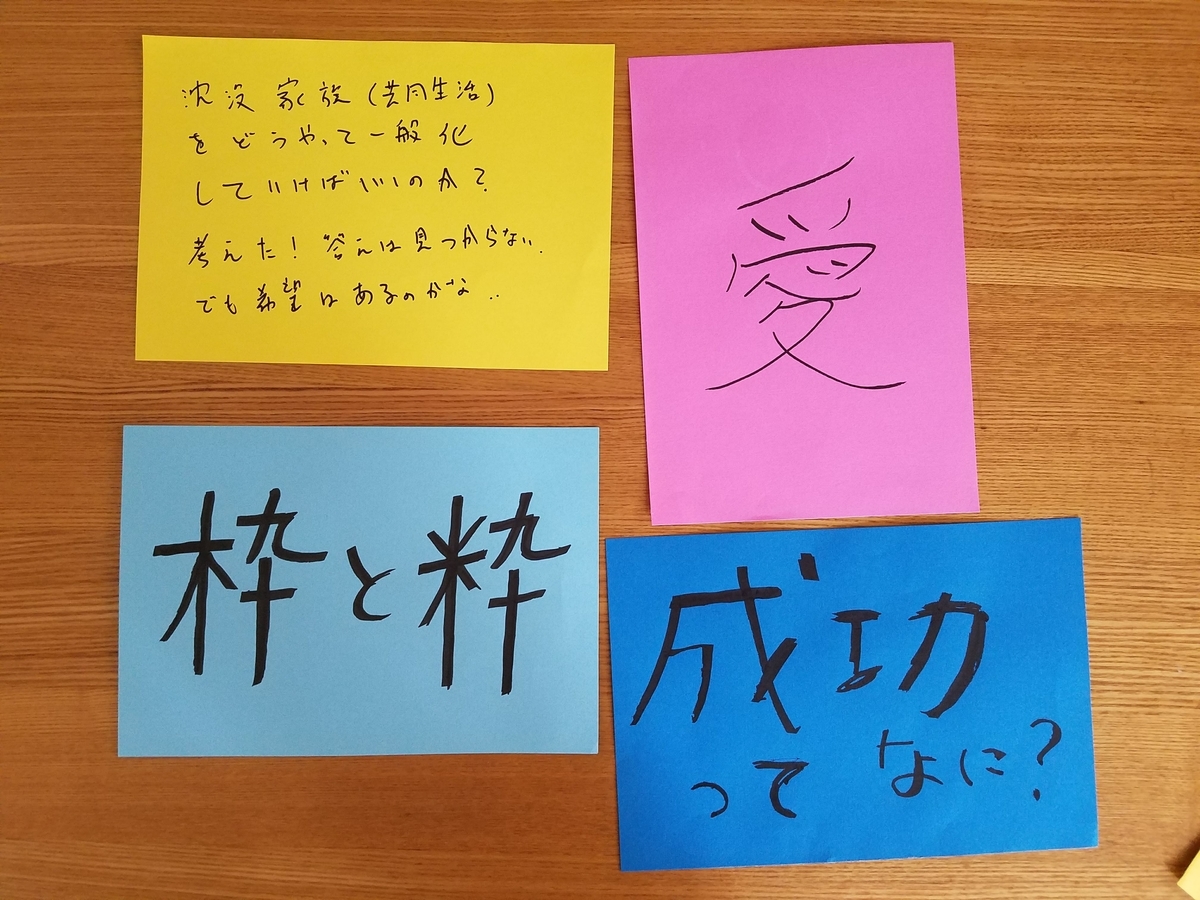 沈没家族(共同生活)
をどうやって一般化
していけばいいのか?
考えた!答えは見つからない.
でも希望はあるのかな..
愛
枠と粋
成功
って なに?